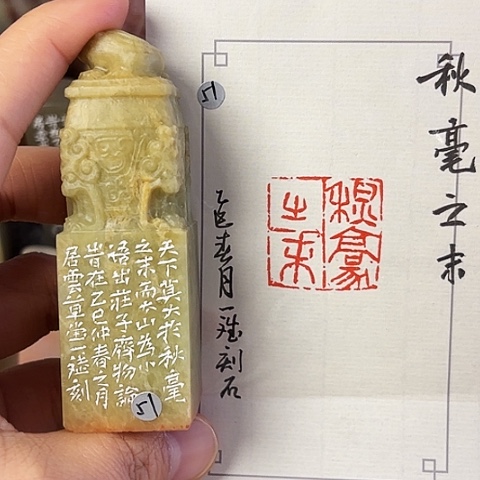 秋毫之末
秋毫
之末
乙巳春月一刻石
51
天下莫大於秋毫
之末而大山為小
語出莊子齊物論
旹在乙巳仲春之月
居雲草堂一刻
51